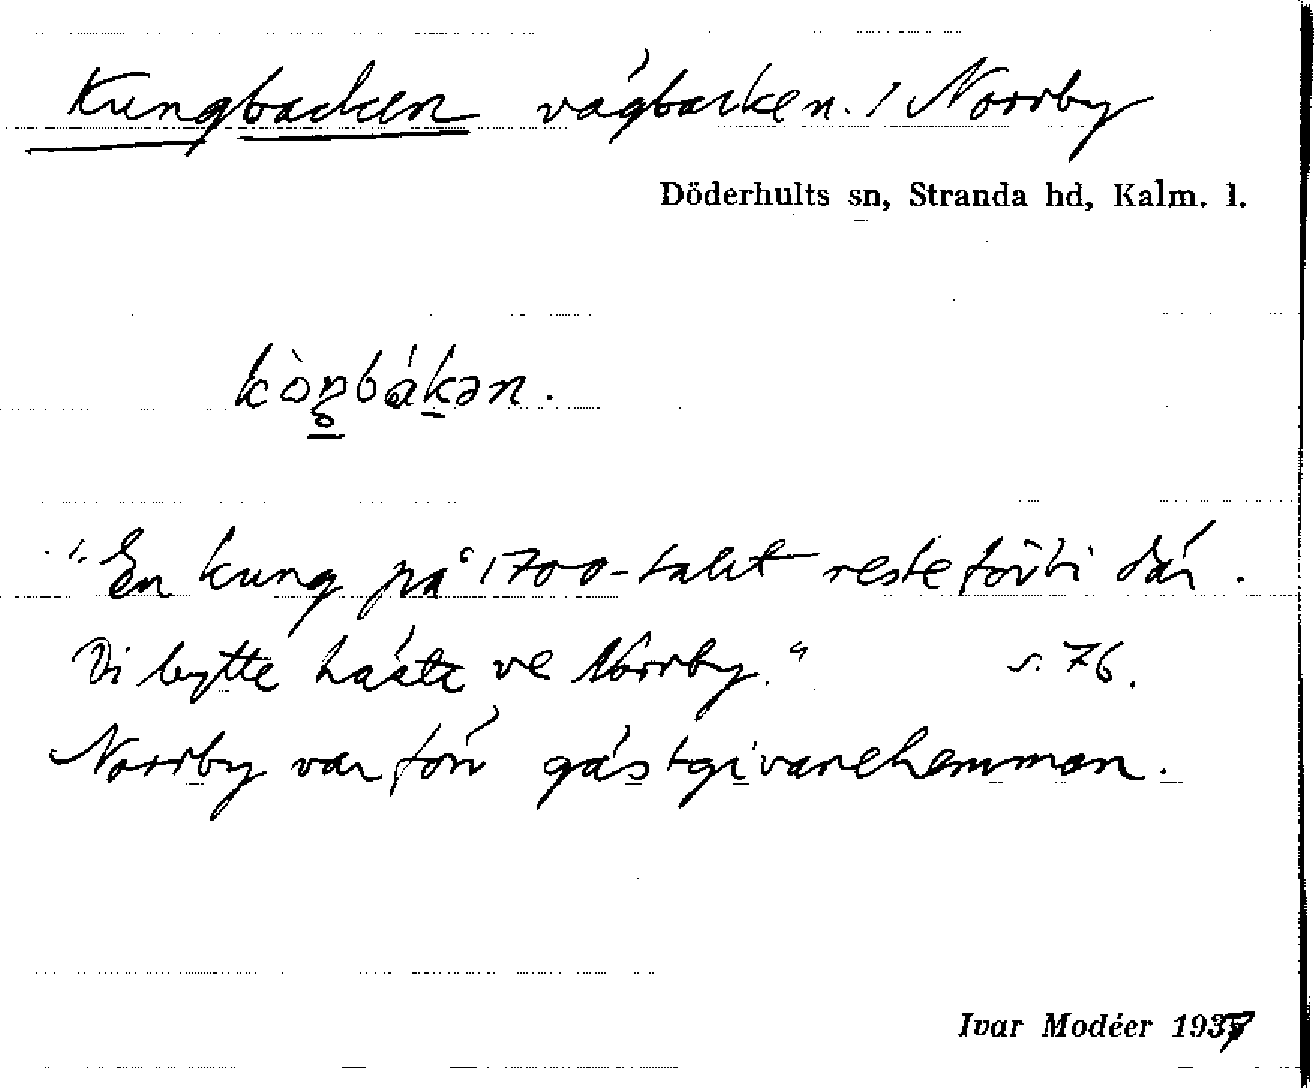 Kungbacken vägbacken. / Norrby
Döderhults sn, Stranda hd, Kalm. l.
kòŋbákən.
"En kung på 1700-talet reste förbi där.
Di bytte hästa ve Norrby." s. 76.
Norrby var förr gästgivarehemman.
Ivar Modéer 1937